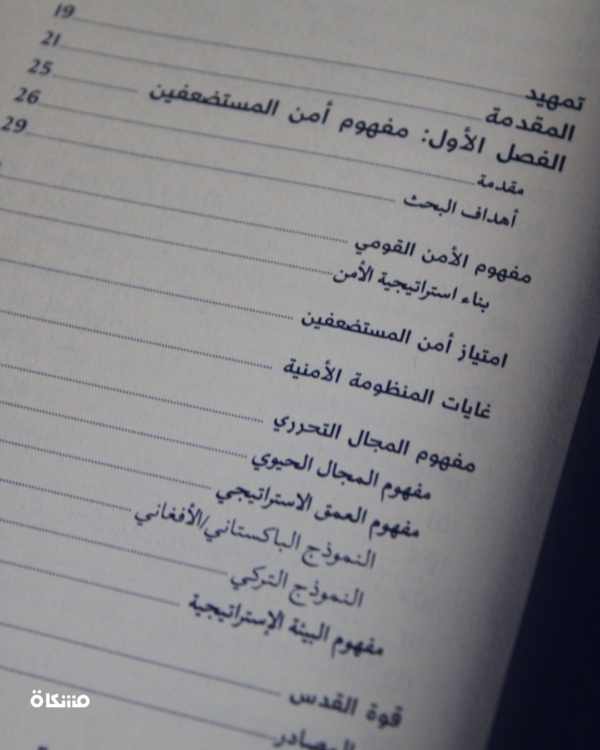 تمهيد 19
المقدمة 21
الفصل الأول: مفهوم أمن المستضعفين 25
مقدمة 26
أهداف البحث 29
مفهوم الأمن القومي
بناء استراتيجية الأمن
امتياز أمن المستضعفين
غايات المنظومة الأمنية
مفهوم المجال التحرري
مفهوم المجال الحيوي
مفهوم العمق الاستراتيجي
النموذج الباكستاني/الأفغاني
النموذج التركي
مفهوم البيئة الإستراتيجية
قوة القدس
المصادر
مشكاة